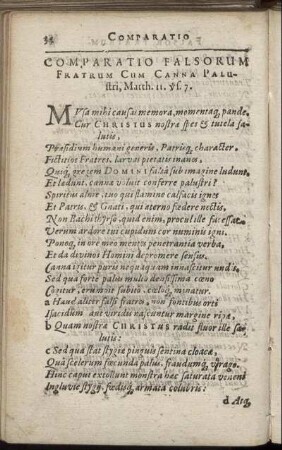 COMPARATIO
COMPARATIO FALSORUM
FRATRUM CUM CANNA PALU-
stri, Matth. 11. ỳs. 7.
MUsa mihi causas memora, momentaq, pande,
Cur CHRISTUS nostræ spes & tutela sa-
lutis,
Præsidium humani generis, Patrisq, character,
Fictitios Fratres, larvas pietatis inanes,
Quiq, gregem DOMINI falsâ sub imagine ludunt,
Et lædunt, cannæ voluit conferre palustri?
Spiritus alme, tuo qui flamine calfacis ignes
Et Patris, & Gnati, qui æterno fœdere nectis,
Non Bachi thyrso, quid enim, procul ille facessat,
Verum ardore tui cupidum cor numinis igni,
Ponoq, in ore meo mentes penetrantia verba,
Et da divinos Homini depromere sensus.
Canna igitur puris nequaquam innascitur undis,
Sed quâ forte palus multo densissima cœno
Cogitur, erumpit subitò, cœloq, minatur.
a Haud aliter falsi fratres, non fontibus orti
Isacidum aut viridi nascuntur margine ripæ,
b Quam nostra CHRISTUS radit fluor ille sa-
lutis:
c Sed quâ stat stygiæ pinguis sentina cloacæ,
Quâ scelerum fœcunda palus, fraudumq, virago.
Hinc caput extollunt monstra hæc saturata veneni
Ingluvie stygij, fœdisq, armata colubris:
d Atq,